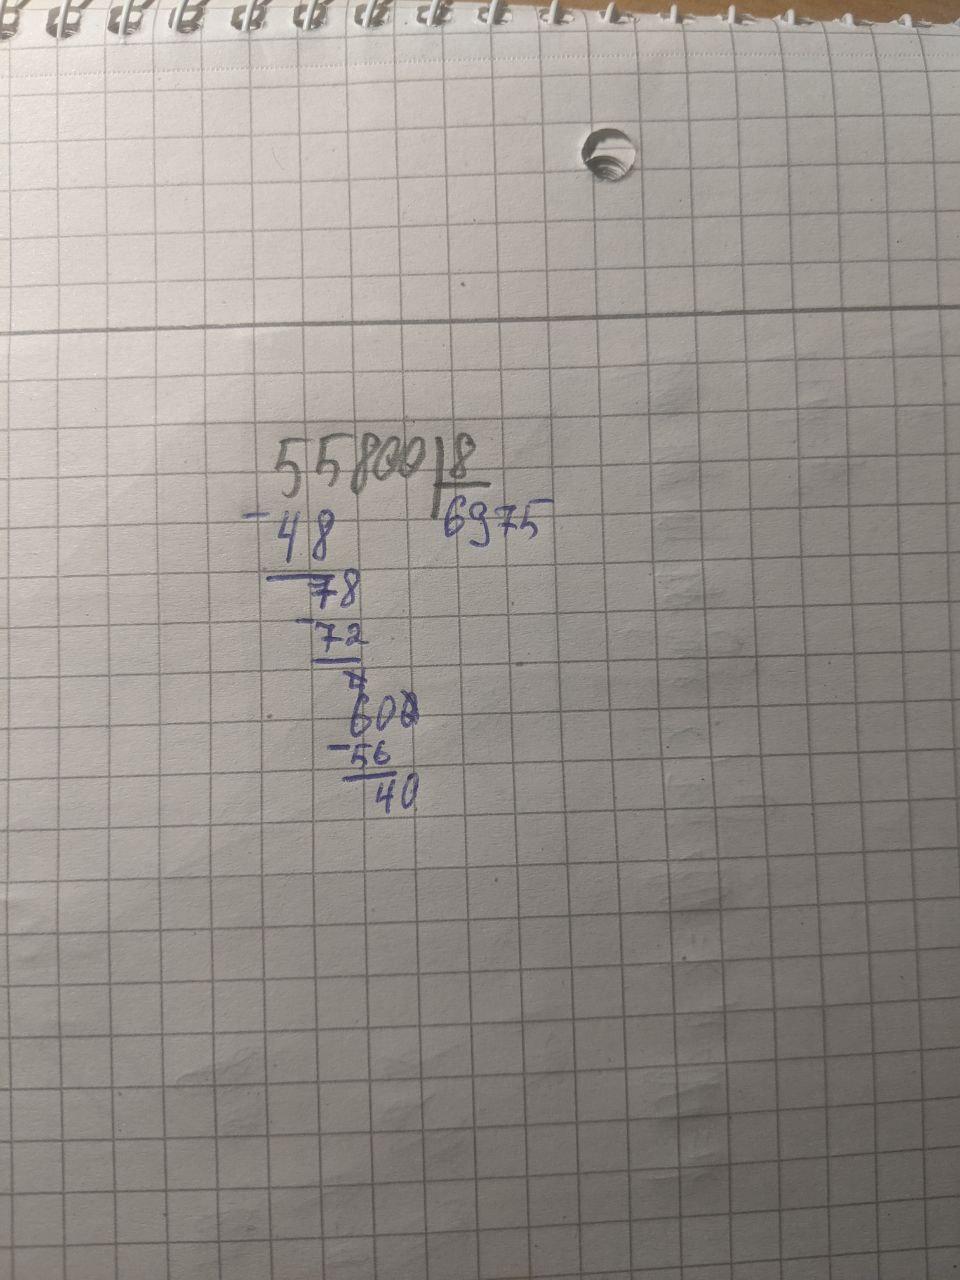 55800 8
-48 6975
78
-72
60
-56
40